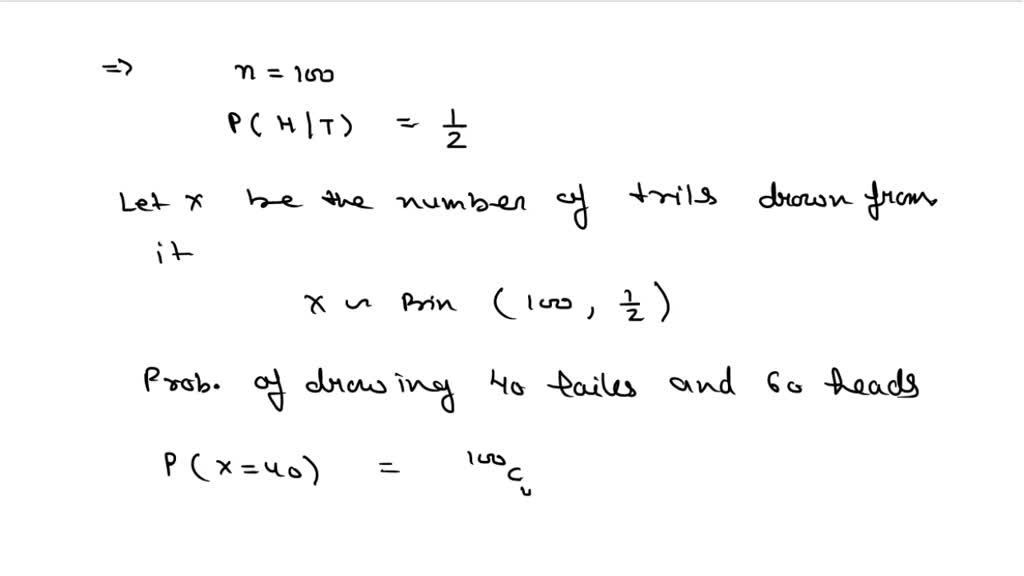 => n = 100
P( H | T ) = 1/2
Let x be the number of trils drown from
it
x ~ Bin ( 100 , 1/2 )
Prob. of drawing 40 tailes and 60 heads
P ( x = 40 ) = ¹⁰⁰C